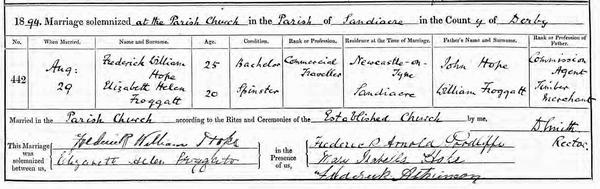 1894. Marriage solemnized at the Parish Church in the Parish of Sandiacre in the County of Derby
No. When Married. Name and Surname. Age. Condition. Rank or Profession. Residence at the Time of Marriage. Father's Name and Surname. Rank or Profession of Father.
442 Aug: 29
Frederick William Hope 25 Bachelor Commercial Traveller Newcastle-on-Tyne John Hope Commission Agent
Elizabeth Helen Froggatt 20 Spinster Sandiacre William Froggatt Timber Merchant
Married in the Parish Church according to the Rites and Ceremonies of the Established Church by me,
This Marriage was solemnized between us,
Frederick William Hope
Elizabeth Helen Froggatt
in the Presence of us,
Frederic Arnold
Mary Isabella
Frederick Atkinson
Smith
Rector